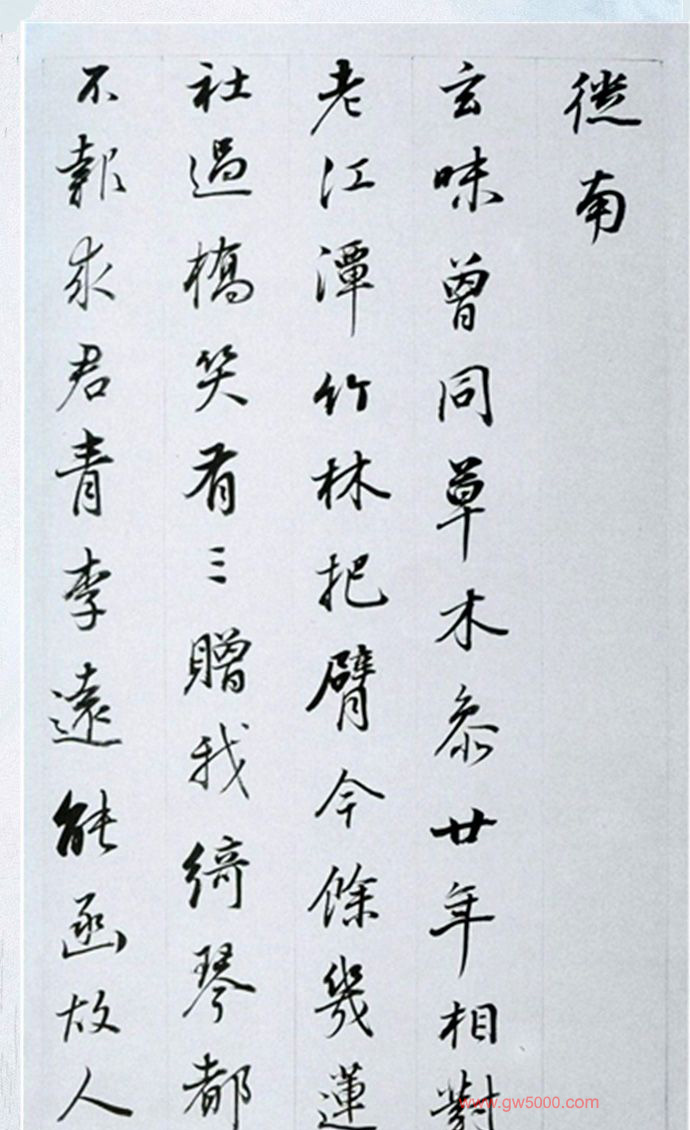 從南
玄味曾同草木參廿年相對
老江潭竹林把臂今餘幾蓮
社過橋笑有三贈我綺琴都
不報求君青李遠能函故人
www.gw5000.com